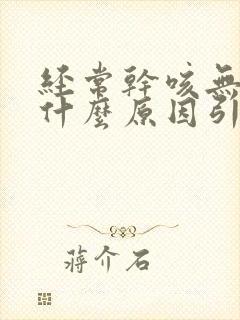 經常幹咳無
什麼原因引
蔣介石